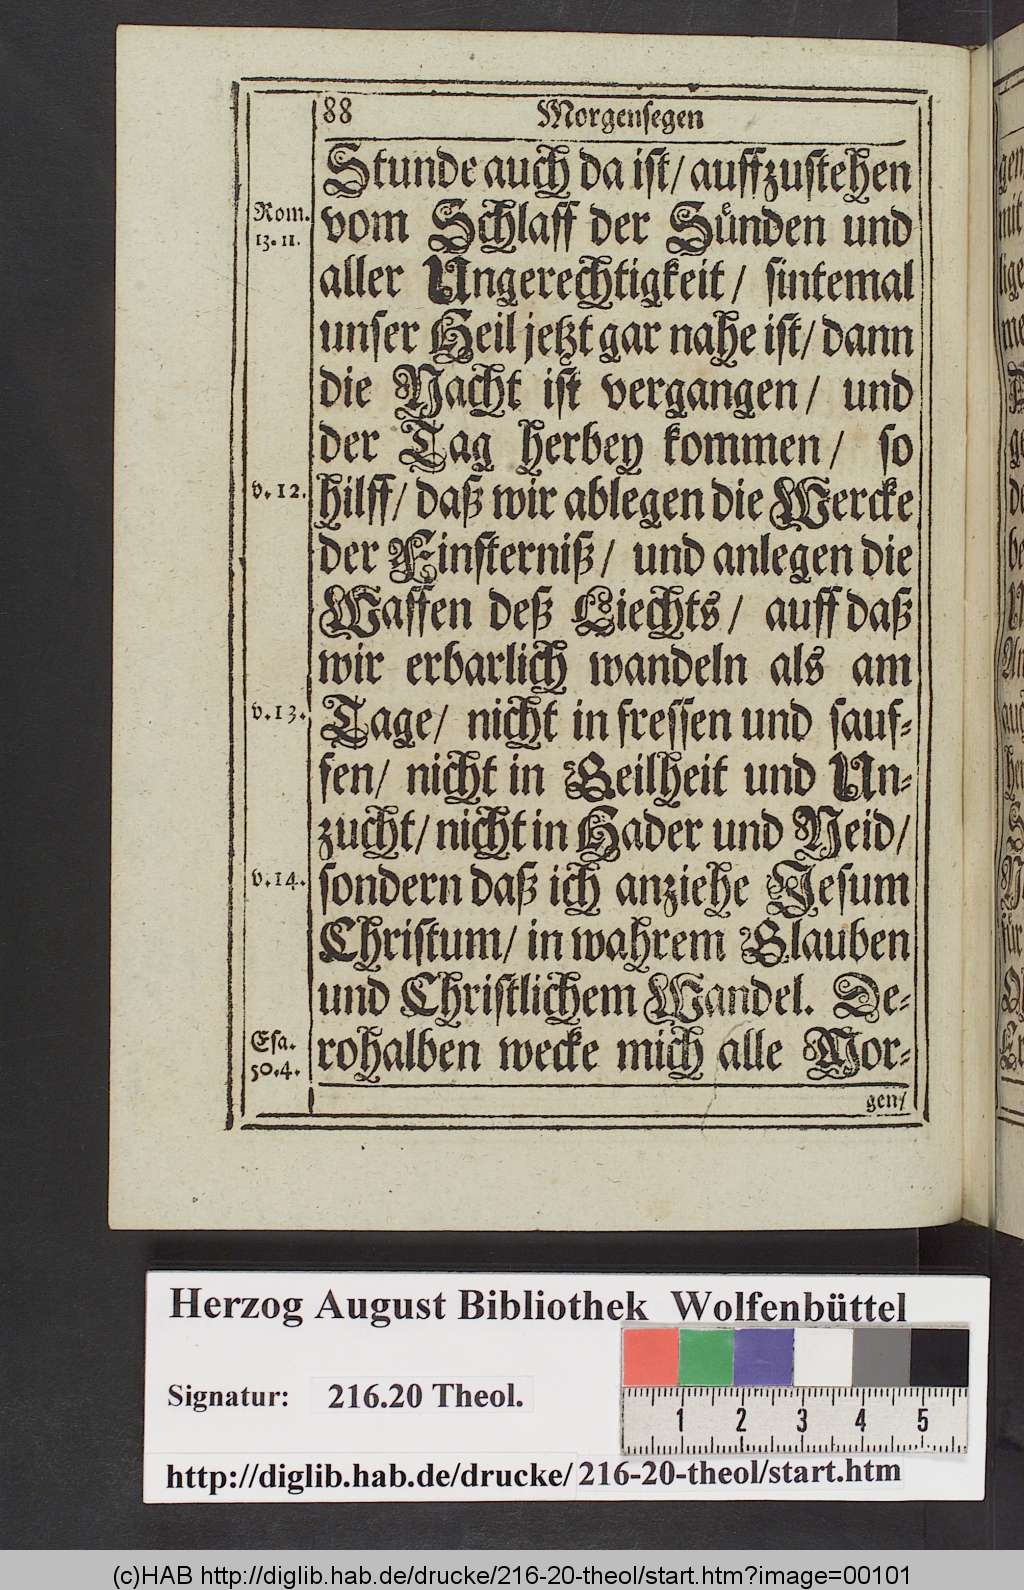 88 Morgensegen
Stunde auch da ist/ auffzustehen
Rom. 13. 11.
vom Schlaff der Sünden und
aller Ungerechtigkeit/ sintemal
unser Heil jetzt gar nahe ist/ dann
die Nacht ist vergangen/ und
der Tag herbey kommen/ so
v. 12.
hilff/ daß wir ablegen die Wercke
der Finsterniß/ und anlegen die
Waffen deß Liechts/ auff daß
wir erbarlich wandeln als am
v. 13.
Tage/ nicht in fressen und sauf-
fen/ nicht in Geilheit und Un-
zucht/ nicht in Hader und Neid/
v. 14.
sondern daß ich anziehe Jesum
Christum/ in wahrem Glauben
und Christlichem Wandel. De-
Esa. 50. 4.
rohalben wecke mich alle Mor-
gen/
Herzog August Bibliothek Wolfenbüttel
Signatur: 216.20 Theol.
1 2 3 4 5
http://diglib.hab.de/drucke/216-20-theol/start.htm
(c)HAB http://diglib.hab.de/drucke/216-20-theol/start.htm?image=00101